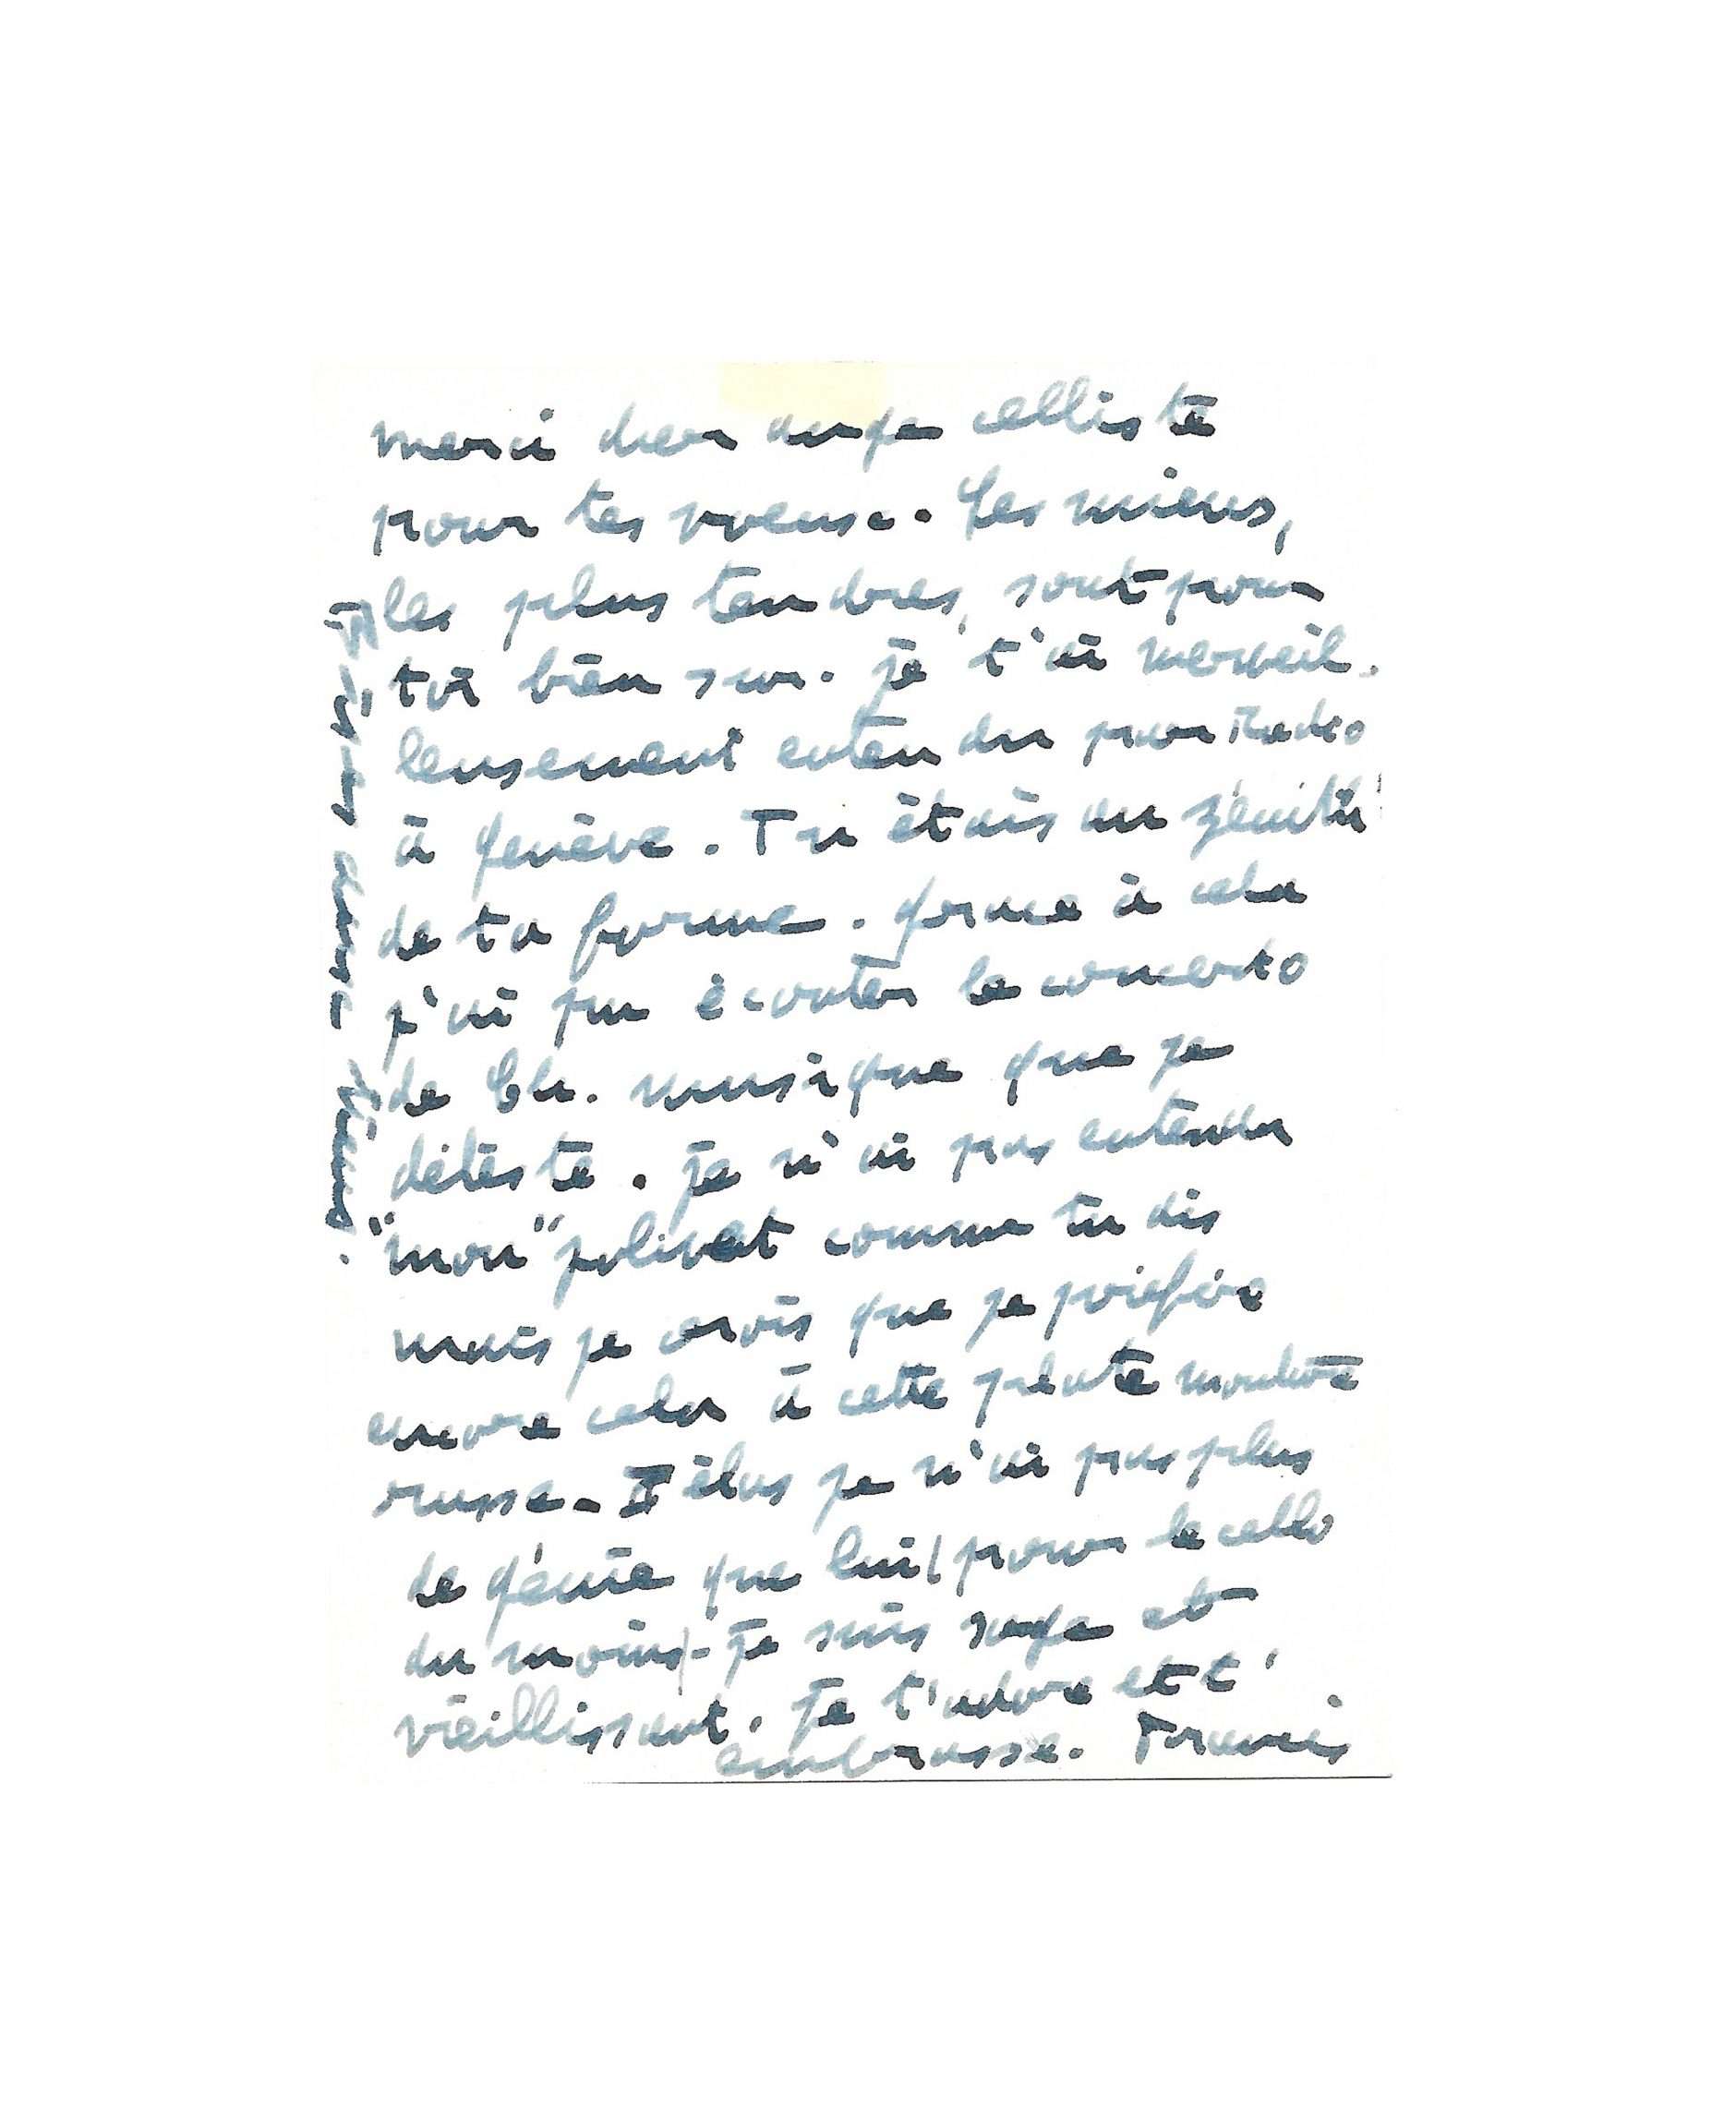 merci cher ange celliste
pour tes voeux. Les miens,
les plus tendres, sont pour
toi bien sur. Je t'ai merveil-
leusement entendu par Radio
à genève. Tu étais au zénith
de ta forme. grace à cela
j'ai pu écouter le concerto
de Ch. musique que je
déteste. Je n'ai pas entendu
"mon" comme tu dis
mais je crois que je préfère
encore cela à cette plate
russe. Hélas je n'ai pas plus
de génie que lui (pour le cello
du moins) - Je suis sage et
vieillissant. Je t'adore et t'
embrasse. Francis